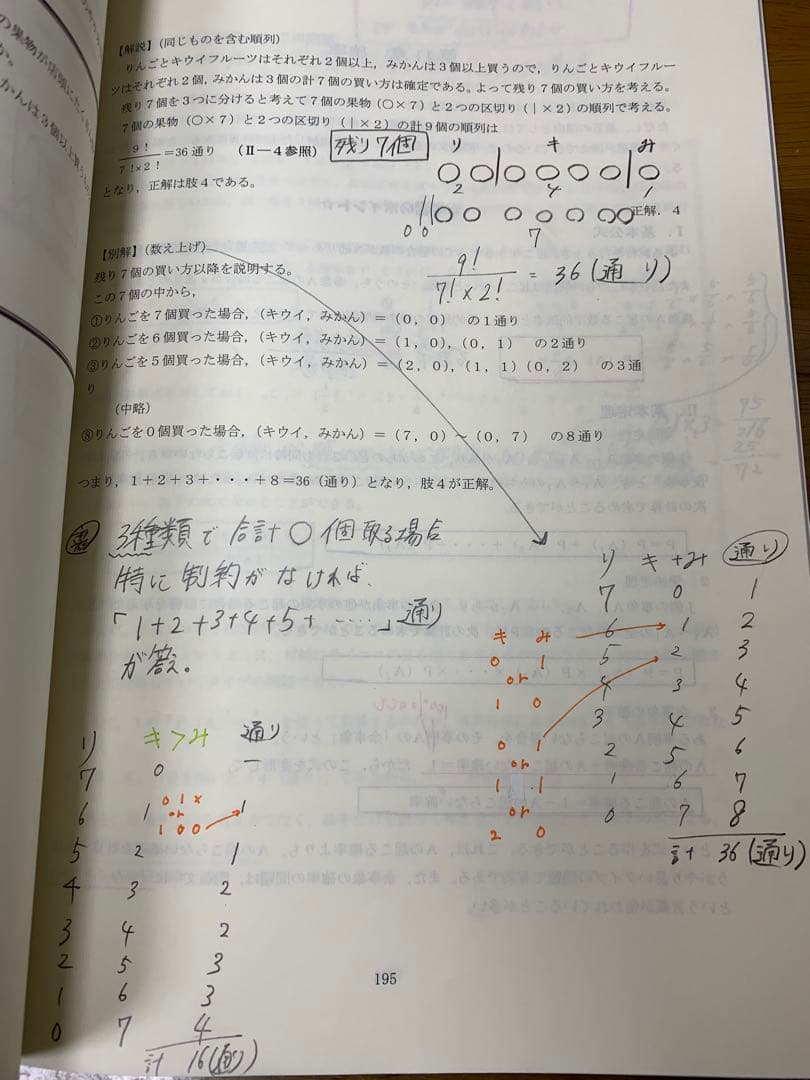 【解説】(同じものを含む順列)
りんごとキウイフルーツはそれぞれ2個以上，みかんは3個以上買うので，りんごとキウイフルー
ツはそれぞれ2個，みかんは3個の計7個の買い方は確定である。よって残り7個の買い方を考える。
残り7個を3つに分けると考えて7個の果物(○×7)と2つの区切り(｜×2)の順列で考える。
7個の果物(○×7)と2つの区切り(｜×2)の計9個の順列は
9！
7！×2！
＝36通り (Ⅱ－4参照)
残り7個
り キ み
○○|○○○○|○
2 4 1
となり，正解は肢4である。
||○○ ○○○○○
0 0 7
正解．4
【別解】(数え上げ)
9!
7!×2!
= 36(通り)
残り7個の買い方以降を説明する。
この7個の中から，
①りんごを7個買った場合，(キウイ，みかん)＝(0，0) の1通り
②りんごを6個買った場合，(キウイ，みかん)＝(1，0)，(0，1) の2通り
③りんごを5個買った場合，(キウイ，みかん)＝(2，0)，(1，1)(0，2) の3通
り
(中略)
⑧りんごを0個買った場合，(キウイ，みかん)＝(7，0)～(0，7) の8通り
つまり，1＋2＋3＋・・・＋8＝36(通り)となり，肢4が正解。
3種類で合計○個取る場合
特に制約がなければ、
「1+2+3+4+5+……」通り
が答え。
り キ+み 通り
7 0 1
6 1 2
5 2 3
4 3 4
3 4 5
2 5 6
1 6 7
0 7 8
計 36(通り)
キ み
0 1
or
1 0
0 1
or
1 1
or
2 0
り キ>み 通り
7 0 −
6 1 1
0 1 ×
or
1 0 0
5 2 1
4 3 2
3 4 2
2 5 3
1 6 3
0 7 4
計 16(通り)
195